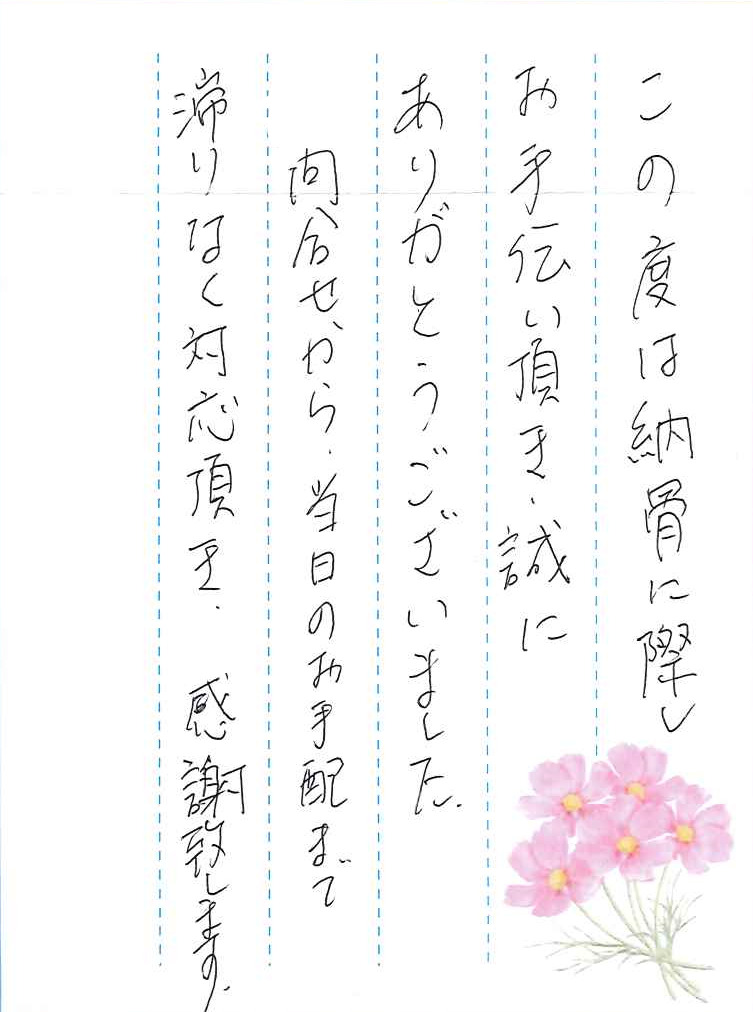 この度は納骨に際し
お手伝い頂き、誠に
ありがとうございました。
問合せから、当日のお手配まで
滞りなく対応頂き、感謝致します。